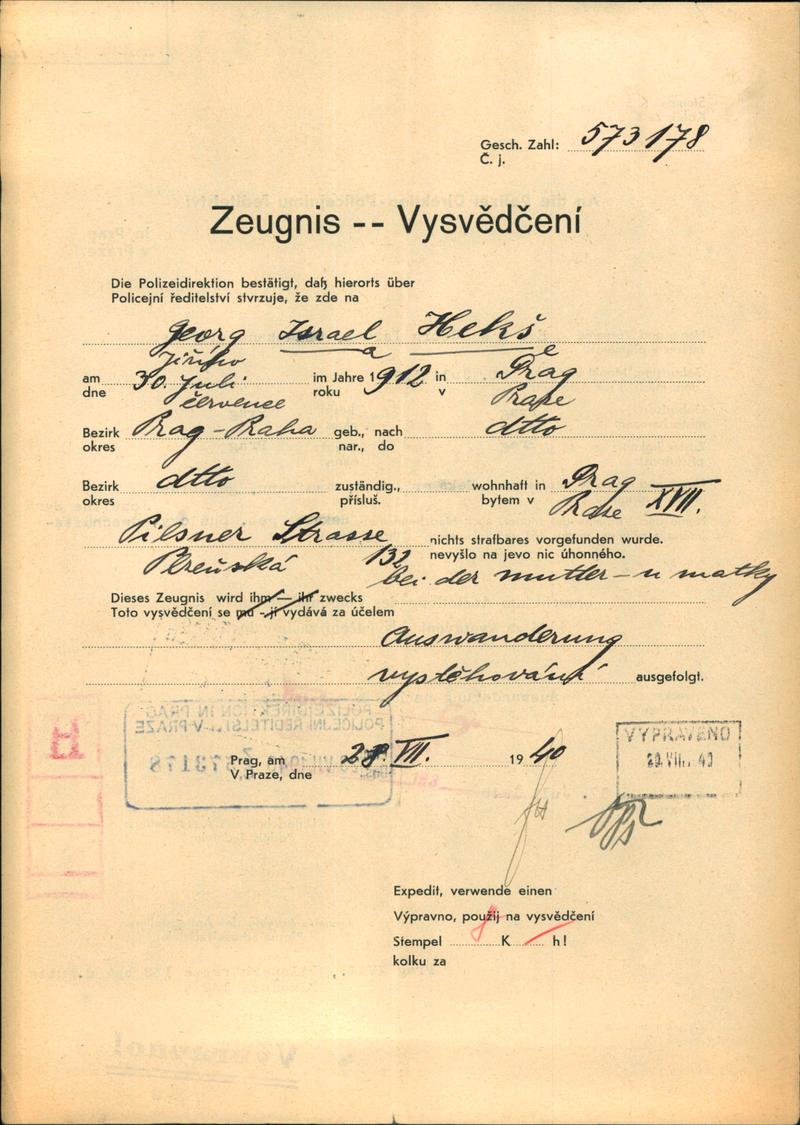 Gesch. Zahl: 573178
Č. j.
Zeugnis -- Vysvědčení
Die Polizeidirektion bestätigt, daß hierorts über
Policejní ředitelství stvrzuje, že zde na
Georg Israel Hekš
Jiřího a e
am 30. Juli im Jahre 1912 in Prag
dne července roku v Praze
Bezirk Prag-Praha geb., nach dtto
okres nar., do
Bezirk dtto zuständig., wohnhaft in Prag
okres přísluš. bytem v Praze XVII.
Pilsner Strasse nichts strafbares vorgefunden wurde.
Plzeňská 132 nevyšlo na jevo nic úhonného.
bei der Mutter - u matky
Dieses Zeugnis wird ihm — ihr zwecks
Toto vysvědčení se mu - jí vydává za účelem
Auswanderung
vystěhování ausgefolgt.
POLIZEIDIREKTION IN PRAG
POLICEJNÍ ŘEDITELSTVÍ V PRAZE
573178
VYPRAVENO
Prag, am 28. VII. 1940
V Praze, dne
Expedit, verwende einen
Výpravno, použij na vysvědčení
Stempel K h!
kolku za